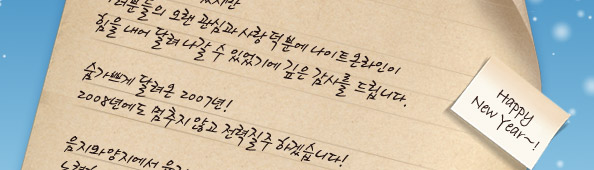 러분들의 오랜 관심과 사랑 덕분에 나이트온라인이
힘을 내어 달려 나갈 수 있었기에 깊은 감사를 드립니다.
숨가쁘게 달려온 2007년!
2008년에도 멈추지 않고 전력질주 하겠습니다!
음지와 양지에서
Happy
New Year~!